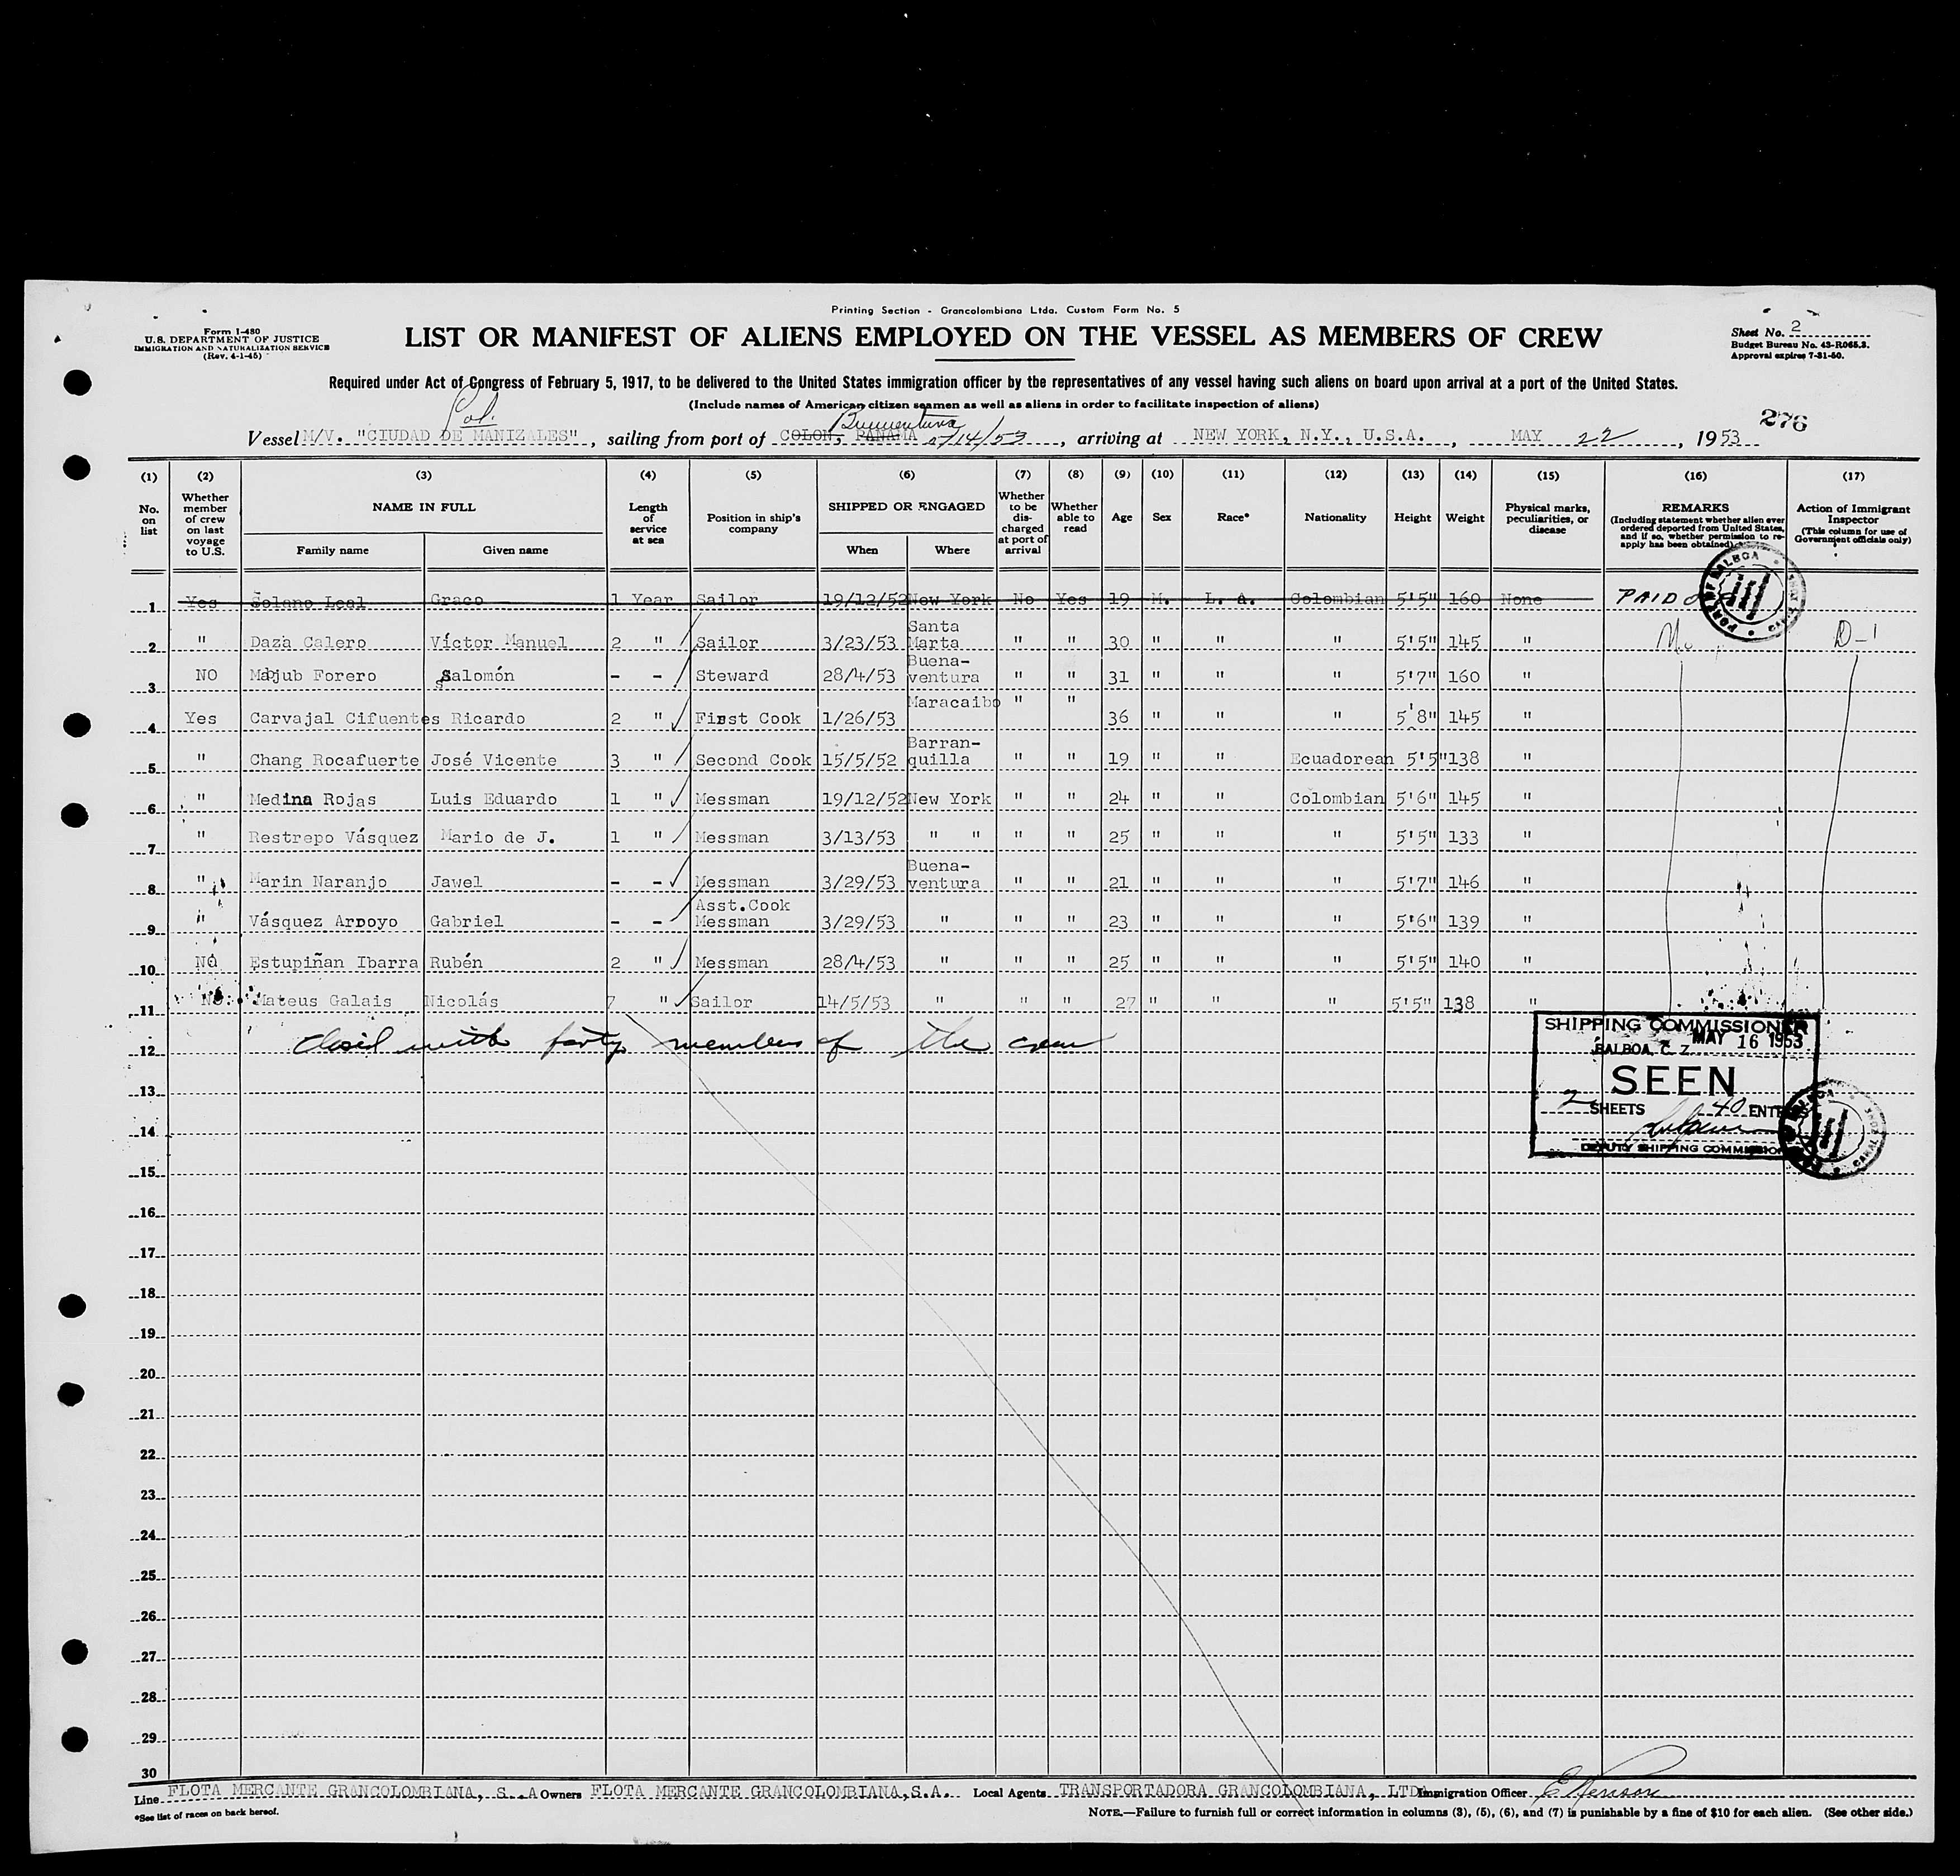 Printing Section - Grancolombiana Ltda. Custom Form No. 5
Form I-480
U.S. DEPARTMENT OF JUSTICE
IMMIGRATION AND NATURALIZATION SERVICE
(Rev. 4-1-45)
LIST OR MANIFEST OF ALIENS EMPLOYED ON THE VESSEL AS MEMBERS OF CREW
Sheet No. 2
Budget Bureau No. 43-R065.3.
Approval expires 7-31-50.
Required under Act of Congress of February 5, 1917, to be delivered to the United States immigration officer by the representatives of any vessel having such aliens on board upon arrival at a port of the United States.
(Include names of American citizen seamen as well as aliens in order to facilitate inspection of aliens)
Col.
Buenaventura
276
Vessel M/V. "CIUDAD DE MANIZALES", sailing from port of COLON, PANAMA 5/14/53, arriving at NEW YORK, N.Y., U.S.A., MAY 22, 1953
(1) (2) (3) (4) (5) (6) (7) (8) (9) (10) (11) (12) (13) (14) (15) (16) (17)
No. on list
Whether member of crew on last voyage to U.S.
NAME IN FULL
Family name
Given name
Length of service at sea
Position in ship's company
SHIPPED OR ENGAGED
When
Where
Whether to be discharged at port of arrival
Whether able to read
Age
Sex
Race*
Nationality
Height
Weight
Physical marks, peculiarities, or disease
REMARKS
(Including statement whether alien ever ordered deported from United States, and if so, whether permission to re-apply has been obtained)
Action of Immigrant Inspector
(This column for use of Government officials only)
PORT OF BALBOA
1 Yes Solano Leal Graco 1 Year Sailor 19/12/52 New York No Yes 19 M. L. A. Colombian 5'5" 160 None PAID
2 " Daza Calero Víctor Manuel 2 " Sailor 3/23/53 Santa Marta " " 30 " " " 5'5" 145 " D-1
3 NO Majub Forero Salomón - - Steward 28/4/53 Buena-ventura " " 31 " " " 5'7" 160 "
4 Yes Carvajal Cifuentes Ricardo 2 " First Cook 1/26/53 Maracaibo " " 36 " " " 5'8" 145 "
5 " Chang Rocafuerte José Vicente 3 " Second Cook 15/5/52 Barran-quilla " " 19 " " Ecuadorean 5'5" 138 "
6 " Medina Rojas Luis Eduardo 1 " Messman 19/12/52 New York " " 24 " " Colombian 5'6" 145 "
7 " Restrepo Vásquez Mario de J. 1 " Messman 3/13/53 " " " " 25 " " " 5'5" 133 "
8 " Marin Naranjo Jawel - - Messman 3/29/53 Buena-ventura " " 21 " " " 5'7" 146 "
9 " Vásquez Arroyo Gabriel - - Asst.Cook Messman 3/29/53 " " " 23 " " " 5'6" 139 "
10 No Estupiñan Ibarra Rubén 2 " Messman 28/4/53 " " " 25 " " " 5'5" 140 "
11 No. Mateus Galais Nicolás 7 " Sailor 14/5/53 " " " 27 " " " 5'5" 138 "
12 closed with forty members of the crew
SHIPPING COMMISSIONER
BALBOA, C. Z. MAY 16 1953
SEEN
2 SHEETS 40
DEPUTY SHIPPING COMMISSIONER
13
14
15
16
17
18
19
20
21
22
23
24
25
26
27
28
29
30
Line FLOTA MERCANTE GRANCOLOMBIANA, S. A Owners FLOTA MERCANTE GRANCOLOMBIANA, S.A. Local Agents TRANSPORTADORA GRANCOLOMBIANA, LTDA. Immigration Officer
*See list of races on back hereof.
NOTE.—Failure to furnish full or correct information in columns (3), (5), (6), and (7) is punishable by a fine of $10 for each alien. (See other side.)